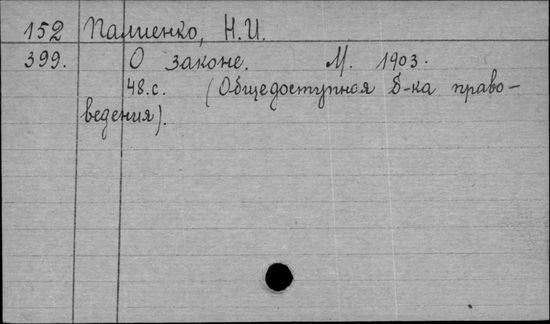 152 Палиенко, Н.И.
399. О законе. М. 1903.
48.с. (Общедоступная б-ка право-
ведения).